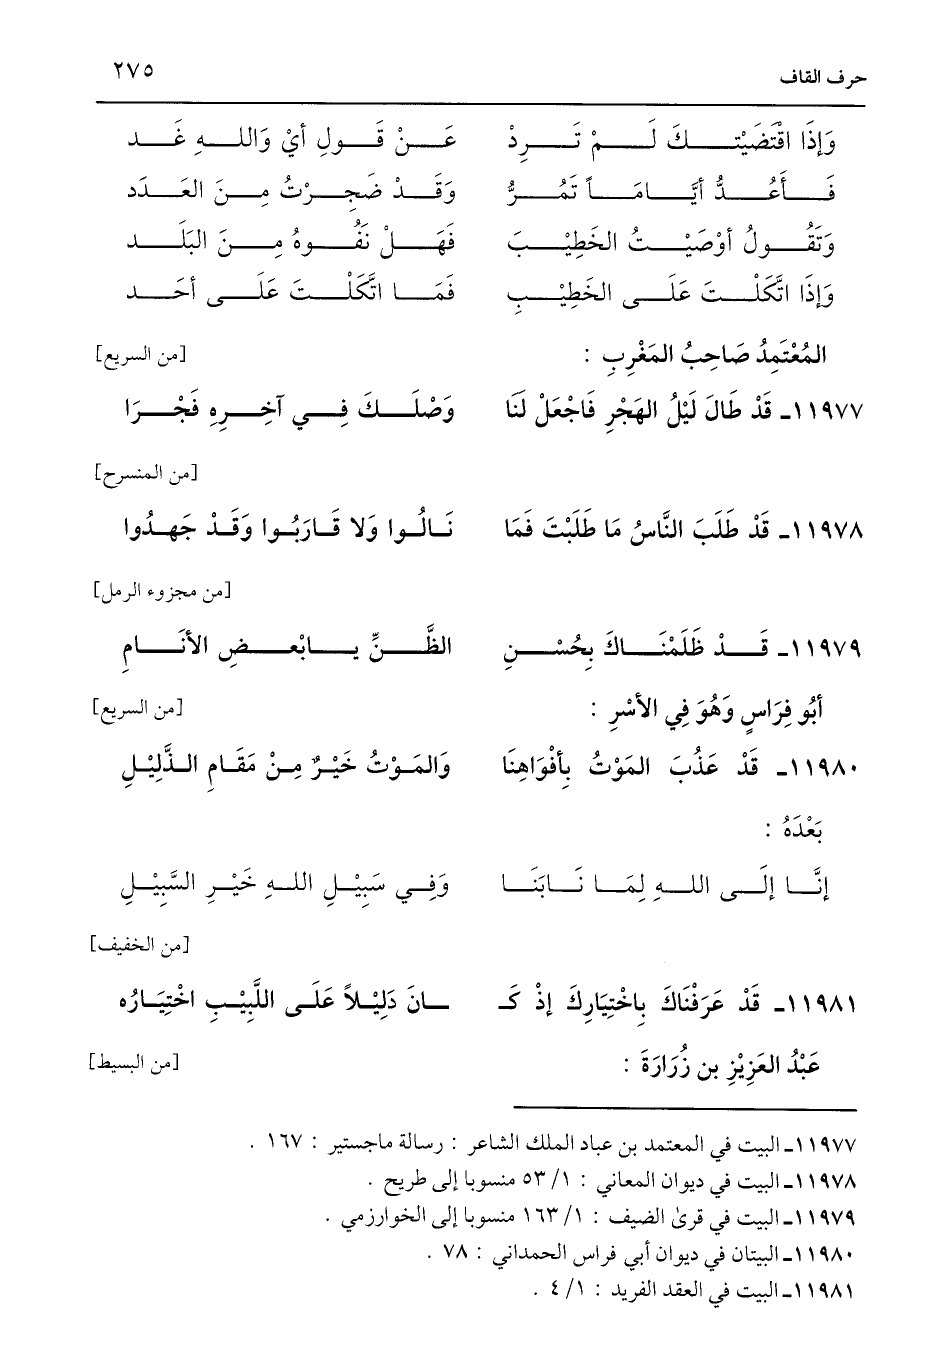 حرف القاف ٢٧٥
وَإِذَا اقْتَضَيْتُكَ لَمْ تَرِدْ عَنْ قَولِ أيْ وَاللهِ غَد
فَأَعُدُّ أيَّامَاً تَمُرُّ وَقَدْ ضَجِرْتُ مِنَ العَدَد
وَتَقُولُ أوْصَيْتُ الخَطِيْبَ فَهَلْ نَفُوهُ مِنَ البَلَد
وَإِذَا اتَّكَلْتَ عَلَى الخَطِيْبِ فَمَا اتَّكَلْتَ عَلَى أحَد
المُعْتَمِدُ صَاحِبُ المَغْرِبِ : [من السريع]
١١٩٧٧ـ قَدْ طَالَ لَيْلُ الهَجْرِ فَاجْعَلْ لَنَا وَصْلَكَ فِي آخِرِهِ فَجْرَا
[من المنسرح]
١١٩٧٨ـ قَدْ طَلَبَ النَّاسُ مَا طَلَبْتَ فَمَا نَالُوا وَلا قَارَبُوا وَقَدْ جَهِدُوا
[من مجزوء الرمل]
١١٩٧٩ـ قَدْ ظَلَمْنَاكَ بِحُسْنِ الظَّنِّ يابْعضِ الأنَامِ
أبُو فِرَاسٍ وَهُوَ فِي الأسْرِ : [من السريع]
١١٩٨٠ـ قَدْ عَذُبَ المَوْتُ بِأفْوَاهِنَا وَالمَوْتُ خَيْرٌ مِنْ مَقَامِ الذَّلِيْلِ
بَعْدَهُ :
إنَّا إلَى اللهِ لِمَا نَابَنَا وَفِي سَبِيْلِ اللهِ خَيْرِ السَّبِيْلِ
[من الخفيف]
١١٩٨١ـ قَدْ عَرَفْنَاكَ بِاخْتِيَارِكَ إذْ كَـ ـانَ دَلِيْلاً عَلَى اللَّبِيْبِ اخْتِيَارُه
عَبْدُ العَزِيْزِ بن زُرَارَةَ : [من البسيط]
١١٩٧٧ـ البيت في المعتمد بن عباد الملك الشاعر : رسالة ماجستير : ١٦٧ .
١١٩٧٨ـ البيت في ديوان المعاني : ١/ ٥٣ منسوبا إلى طريح .
١١٩٧٩ـ البيت في قرىٰ الضيف : ١/ ١٦٣ منسوبا إلى الخوارزمي .
١١٩٨٠ـ البيتان في ديوان أبي فراس الحمداني : ٧٨ .
١١٩٨١ـ البيت في العقد الفريد : ١/ ٤ .